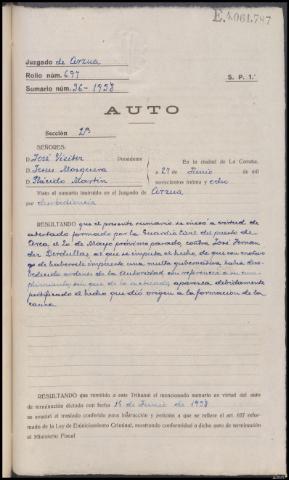 E.4061.747
Juzgado de Arzua
Rollo núm. 697
S. P. 1.ª
Sumario núm. 36-1938
AUTO
Sección 2ª
SEÑORES:
D. José Visiter Presidente
D. Jesus Mosquera
D. Plácido Martin
En la ciudad de La Coruña,
a 27 de Junio de mil
novecientos treinta y ocho
Visto el sumario instruido en el Juzgado de Arzua
por desobediencia
RESULTANDO que el presente sumario se inició a virtud de
atestado formado por la Guardia Civil del puesto de
Arca, el 20 de Mayo próximo pasado contra José Fernan
dez Bordullos, al que se imputa el hecho de que con motivo
de habersele impuesto una multa gubernativa había deso
bedecido ordenes de la Autoridad con referencia a su cum
plimiento, sin que de lo actuado aparezca debidamente
justificado el hecho que dió origen a la formación de la
causa.
RESULTANDO que remitido a este Tribunal el mencionado sumario en virtud del auto
de terminación dictado con fecha 14 de Junio de 1938
se acordó el traslado conferido para instrucción y petición a que se refiere el art. 627 refor-
mado de la Ley de Enjuiciamiento Criminal, mostrando conformidad a dicho auto de terminación
el Ministerio Fiscal